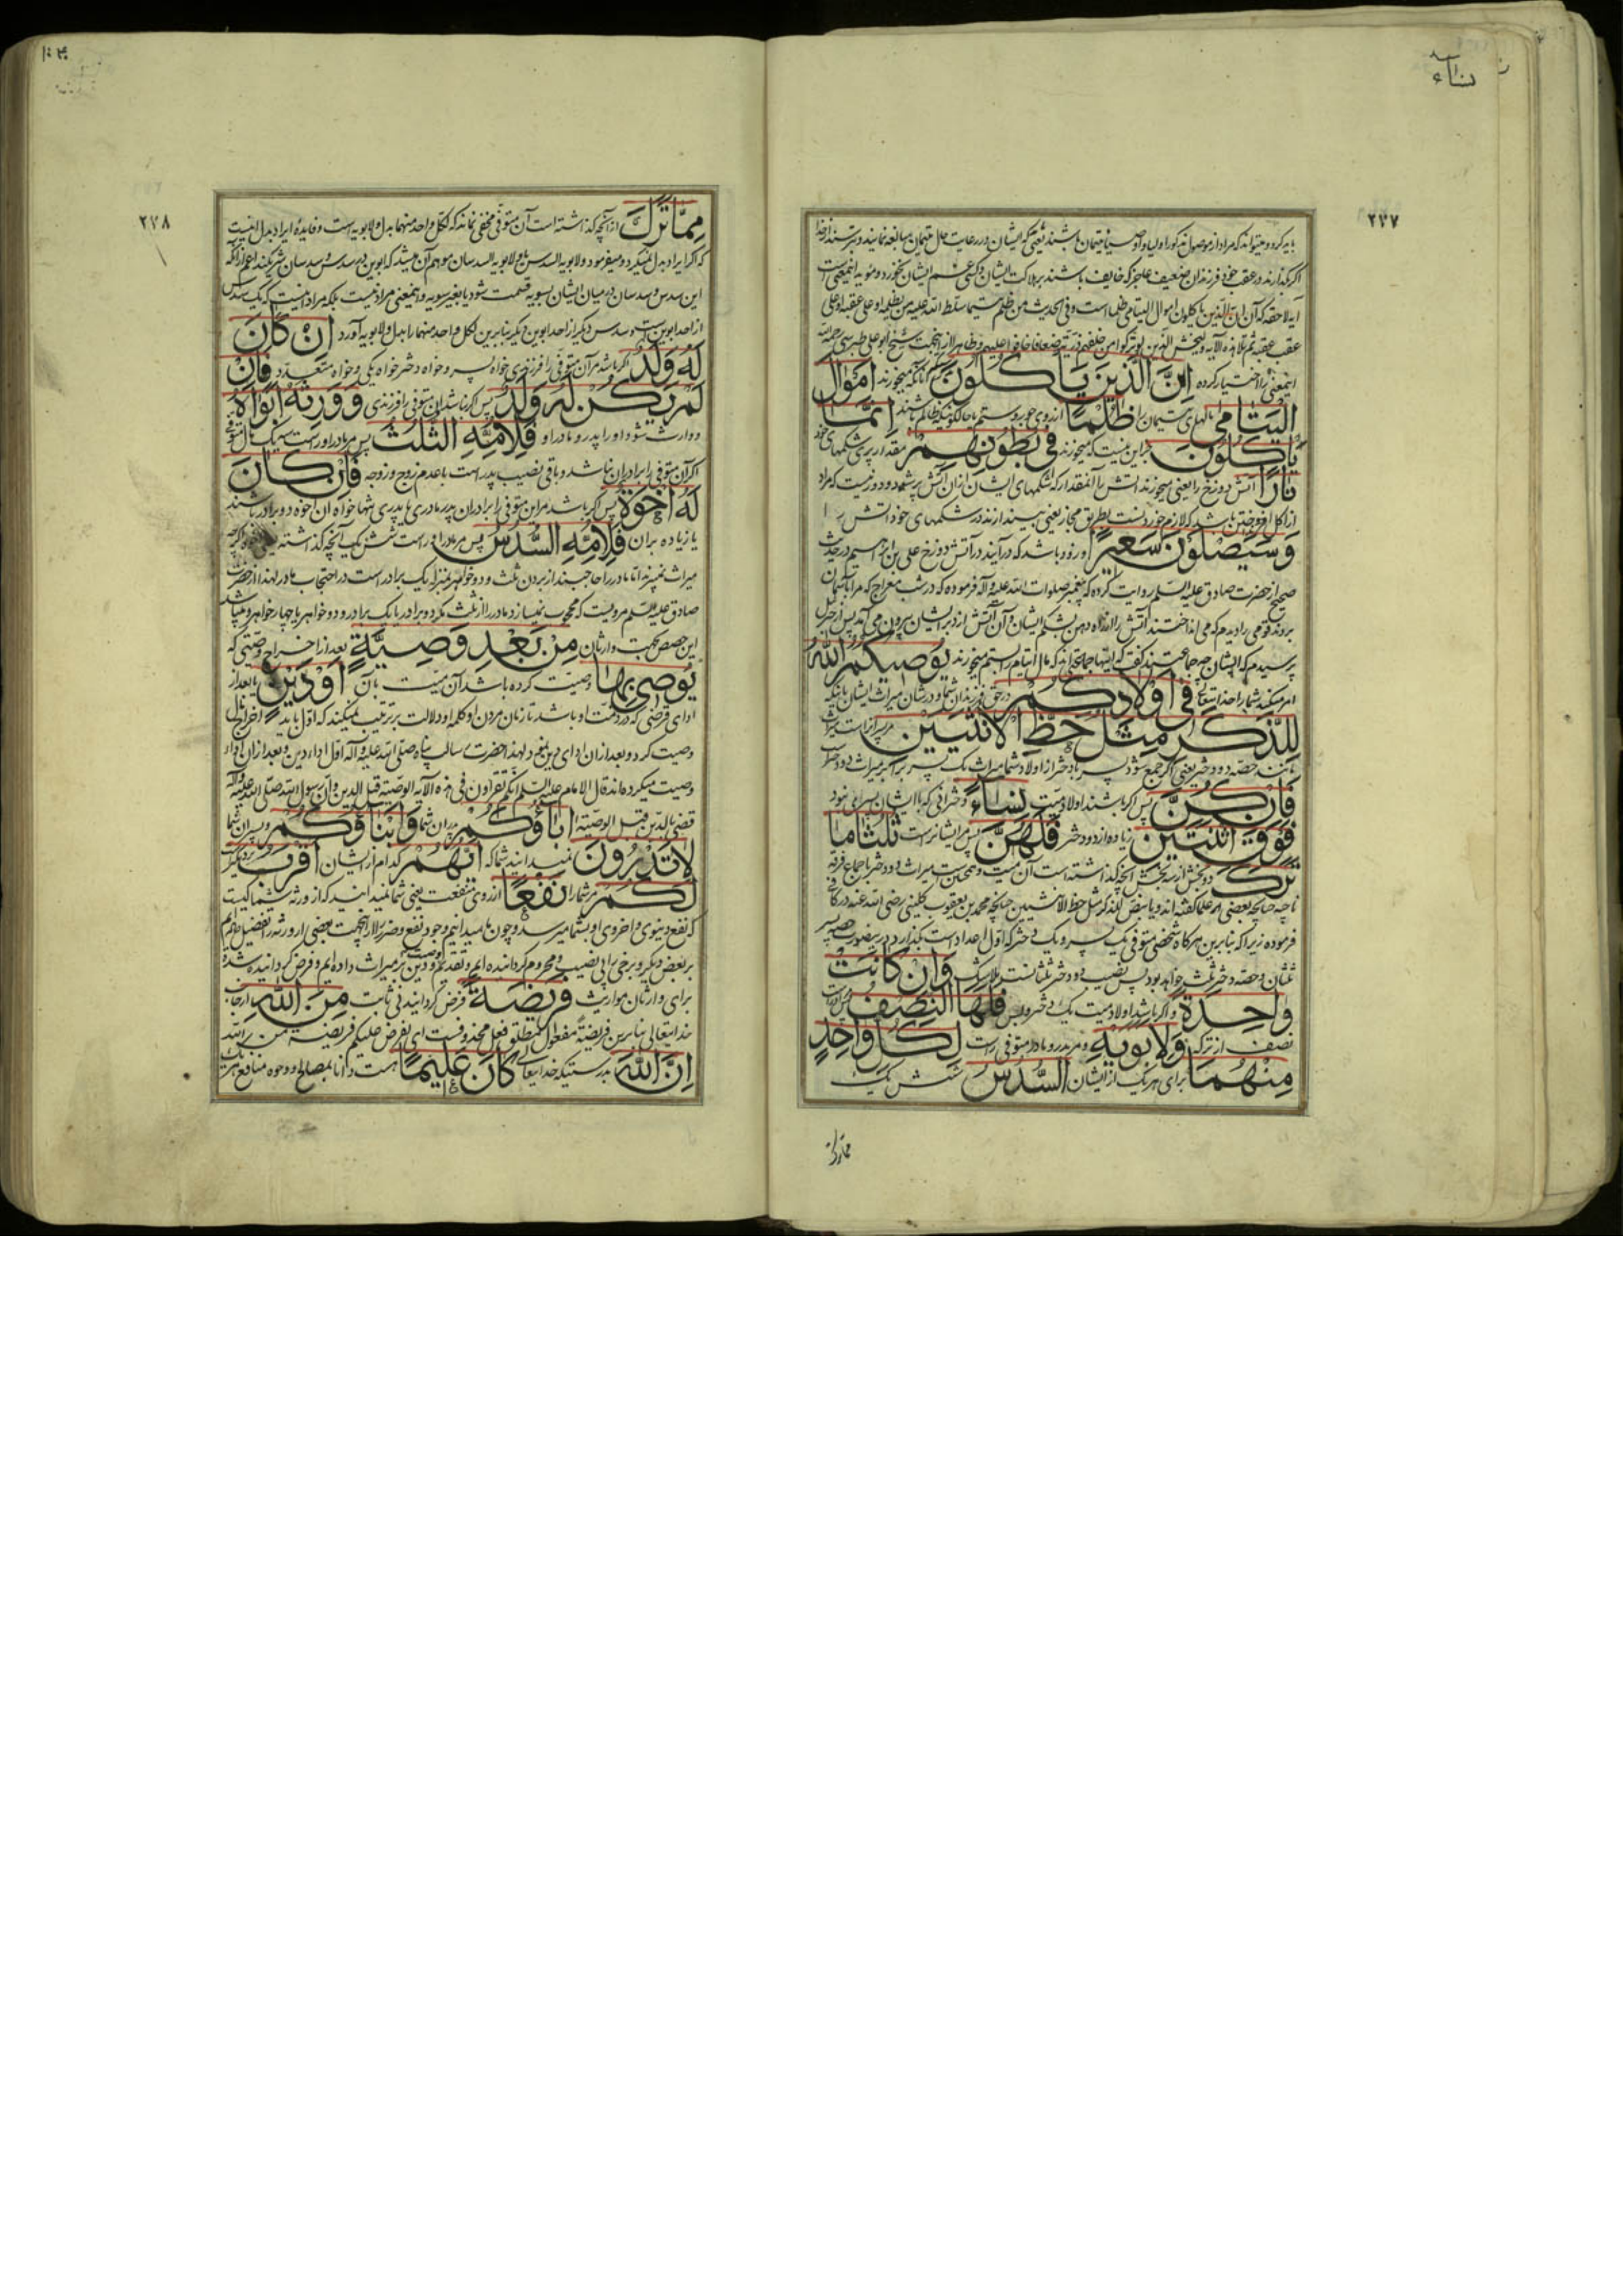 نساء
۲۷۷
باید کرد و میتواند که مراد از موصول مذکور اولیا و اوصیا یتیمان باشند یعنی که ایشان در رعایت حال یتیمان مبالغه نمایند و بترسند از خدا
اگر بگذارند در عقب خود فرزندان ضعیف عاجز که خایف باشند بر هلاکت ایشان و کسی غم ایشان نخورد و مؤید اینمعنی است
آیه لاحقه که ان الذین یاکلون اموال الیتامی ظلما است و فی الحدیث من ظلم یتیما سلط الله علیه من یظلمه او علی عقبه او علی
عقب عقبه ثم تلا هذه الآیه ولیخش الذین لو ترکوا من خلفهم ذریة ضعافا خافوا علیهم و ظاهرا از اینجهت شیخ ابو علی طبرسی رحمه الله
اینمعنی را اختیار کرده إِنَّ الَّذِينَ يَأْكُلُونَ آنانکه میخورند أَمْوَالَ
الْيَتَامَى مالهای یتیمان را ظُلْمًا از روی جور و ستم یا حالکونیکه ظالم باشند إِنَّمَا
يَأْكُلُونَ جز این نیست که میخورند فِي بُطُونِهِمْ مقدار پری شکمهای خود
نَارًا آتش دوزخ را یعنی میخورند آتش را آنمقدار که شکمهای ایشان از آن آتش پر شود و دور نیست که مراد
از اکل افروختن باشد که لازم خوردنست بطریق مجاز یعنی میندازند در شکمهای خود آتش را
وَسَيَصْلَوْنَ سَعِيرًا و زود باشد که در آیند در آتش دوزخ علی بن ابراهیم در حدیث
صحیح از حضرت صادق علیه السلام روایت کرده که پیغمبر صلوات الله علیه و آله فرموده که در شب معراج که مرا بآسمان
بردند قومی را دیدم که می انداختند آتش را از راه دهن بشکم ایشان و آن آتش از دبر ایشان بیرون می آمد پس از جبرئیل
پرسیدم که ایشان چه جماعتند گفت که اینها جماعتی اند که مال ایتام را بستم میخورند يُوصِيكُمُ اللَّهُ
امر میکند شما را خدایتعالی فِي أَوْلَادِكُمْ در حق فرزندان شما و در شان میراث ایشان باینکه
لِلذَّكَرِ مِثْلُ حَظِّ الْأُنْثَيَيْنِ مر پسر راست میراث
مانند حصه دو دختر یعنی اگر جمع شود پسر با دختر از اولاد شما میراث یک پسر برابر میراث دو دختر است
فَإِنْ كُنَّ پس اگر باشند اولاد میت نِسَاءً دخترانی که با ایشان پسری نبود
فَوْقَ اثْنَتَيْنِ زیاده از دو دختر فَلَهُنَّ پس مر ایشانراست ثُلُثَا مَا
تَرَكَ دو بخش از سه بخش آنچه گذاشته است آن میت و همین است میراث دو دختر باجماع فرقه
ناجیه چنانچه بعضی از علما گفته اند و یا بنص للذکر مثل حظ الانثیین چنانچه محمد بن یعقوب کلینی رضی الله عنه در کافی
فرموده زیرا که بنابرین هر گاه شخصی متوفی یک پسر و یک دختر که اول اعداد است بگذارد در ینصورت حصه پسر
ثلثان و حصه دختر ثلث خواهد بود پس نصیب دو دختر ثلثانست بلا شک وَإِنْ كَانَتْ
وَاحِدَةً و اگر باشد اولاد میت یک دختر و بس فَلَهَا النِّصْفُ پس او راست
نصف از ترکه وَلِأَبَوَيْهِ و مر پدر و مادر متوفی راست لِكُلِّ وَاحِدٍ
مِنْهُمَا برای هر یک از ایشان السُّدُسُ شش یک
مما ترک
۲۷۸
مِمَّا تَرَكَ از آنچه گذاشته است آن متوفی مخفی نماند که لکل واحد منهما بدل ولابویه است و فایده ایراد بدل اینست
که اگر ایراد بدل نمیکرد و میفرمود ولابویه السدس یا ولابویه السدسان موهم آن میشد که ابوین در سدس و سدسان شریکند اعم از آنکه
این سدس و سدسان در میان ایشان بسویه قسمت شود یا بغیر سویه و اینمعنی مراد نیست بلکه مراد اینست که یک سدس
از احد ابوین است و سدس دیگر از احد ابوین دیگر بنابرین لکل واحد منهما را بدل ولابویه آورد إِنْ كَانَ
لَهُ وَلَدٌ اگر باشد مر آن متوفی را فرزندی خواه پسر و خواه دختر خواه یکی و خواه متعدد فَإِنْ
لَمْ يَكُنْ لَهُ وَلَدٌ پس اگر نباشد آن متوفی را فرزندی وَوَرِثَهُ أَبَوَاهُ
و وارث شود او را پدر و مادر او فَلِأُمِّهِ الثُّلُثُ پس مر مادر او راست سه یک مال متوفی
اگر آن متوفی را برادران نباشد و باقی نصیب پدر است با عدم زوج و زوجه فَإِنْ كَانَ
لَهُ إِخْوَةٌ پس اگر باشد مر این متوفی را برادران پدر مادری یا پدری تنها خواه آن اخوه دو برادر باشند
یا زیاده بران فَلِأُمِّهِ السُّدُسُ پس مر مادر او راست شش یک آنچه گذاشته
میراث نمیبرند اما مادر را حاجبند از بردن ثلث و دو خواهر بمنزله یک برادر است در احتجاب مادر لهذا از حضرت
صادق علیه السلام مرویست که محجوب نمیسازد مادر را از ثلث مگر دو برادر یا یک برادر و دو خواهر یا چهار خواهر و میباشد
این حصص بجهت وارثان مِنْ بَعْدِ وَصِيَّةٍ بعد از اخراج وصیتی که
يُوصِي بِهَا وصیت کرده باشد آن میت بآن أَوْ دَيْنٍ یا بعد از
ادای قرضی که در ذمت او باشد تا زمان مردن او و کلمه او دلالت بر ترتیب نمیکند که اول باید اخراج مال
وصیت کرد و بعد از ان ادای دین نمود لهذا حضرت رسالت پناه صلی الله علیه و آله اول اداء دین و بعد از ان اداء
وصیت میکرده اند قال الامام علیه السلام انکم تقرأون فی هذه الآیه الوصیة قبل الدین و ان رسول الله صلی الله علیه و آله
قضی الدین قبل الوصیة آبَاؤُكُمْ پدران شما وَأَبْنَاؤُكُمْ و پسران شما
لَا تَدْرُونَ نمیدانید شما که أَيُّهُمْ کدام از ایشان أَقْرَبُ نزدیکتر
لَكُمْ مر شما را نَفْعًا از روی منفعت یعنی شما نمیدانید که از ورثه شما کیست
که نفع دنیوی و اخروی او بشما میرسد و چون ما میدانیم وجود نفع و ضرر را لاجرم از اینجهت بعضی از ورثه را تفضیل داده ایم
بر بعض دیگر و برخی را بی نصیب و محروم گردانیده ایم و تقدیم وصیت و دین بر میراث داده ایم و فرض گردانیده شده
برای وارثان مواریث فَرِيضَةً فرض گردانیدنی ثابت مِنَ اللَّهِ از جانب
خدایتعالی بنابرین فریضةً مفعول مطلق فعل محذوفست ای یفرض علیکم فریضة من الله
إِنَّ اللَّهَ بدرستیکه خدایتعالی كَانَ عَلِيمًا هست دانا بمصالح و وجوه منافع هر یک